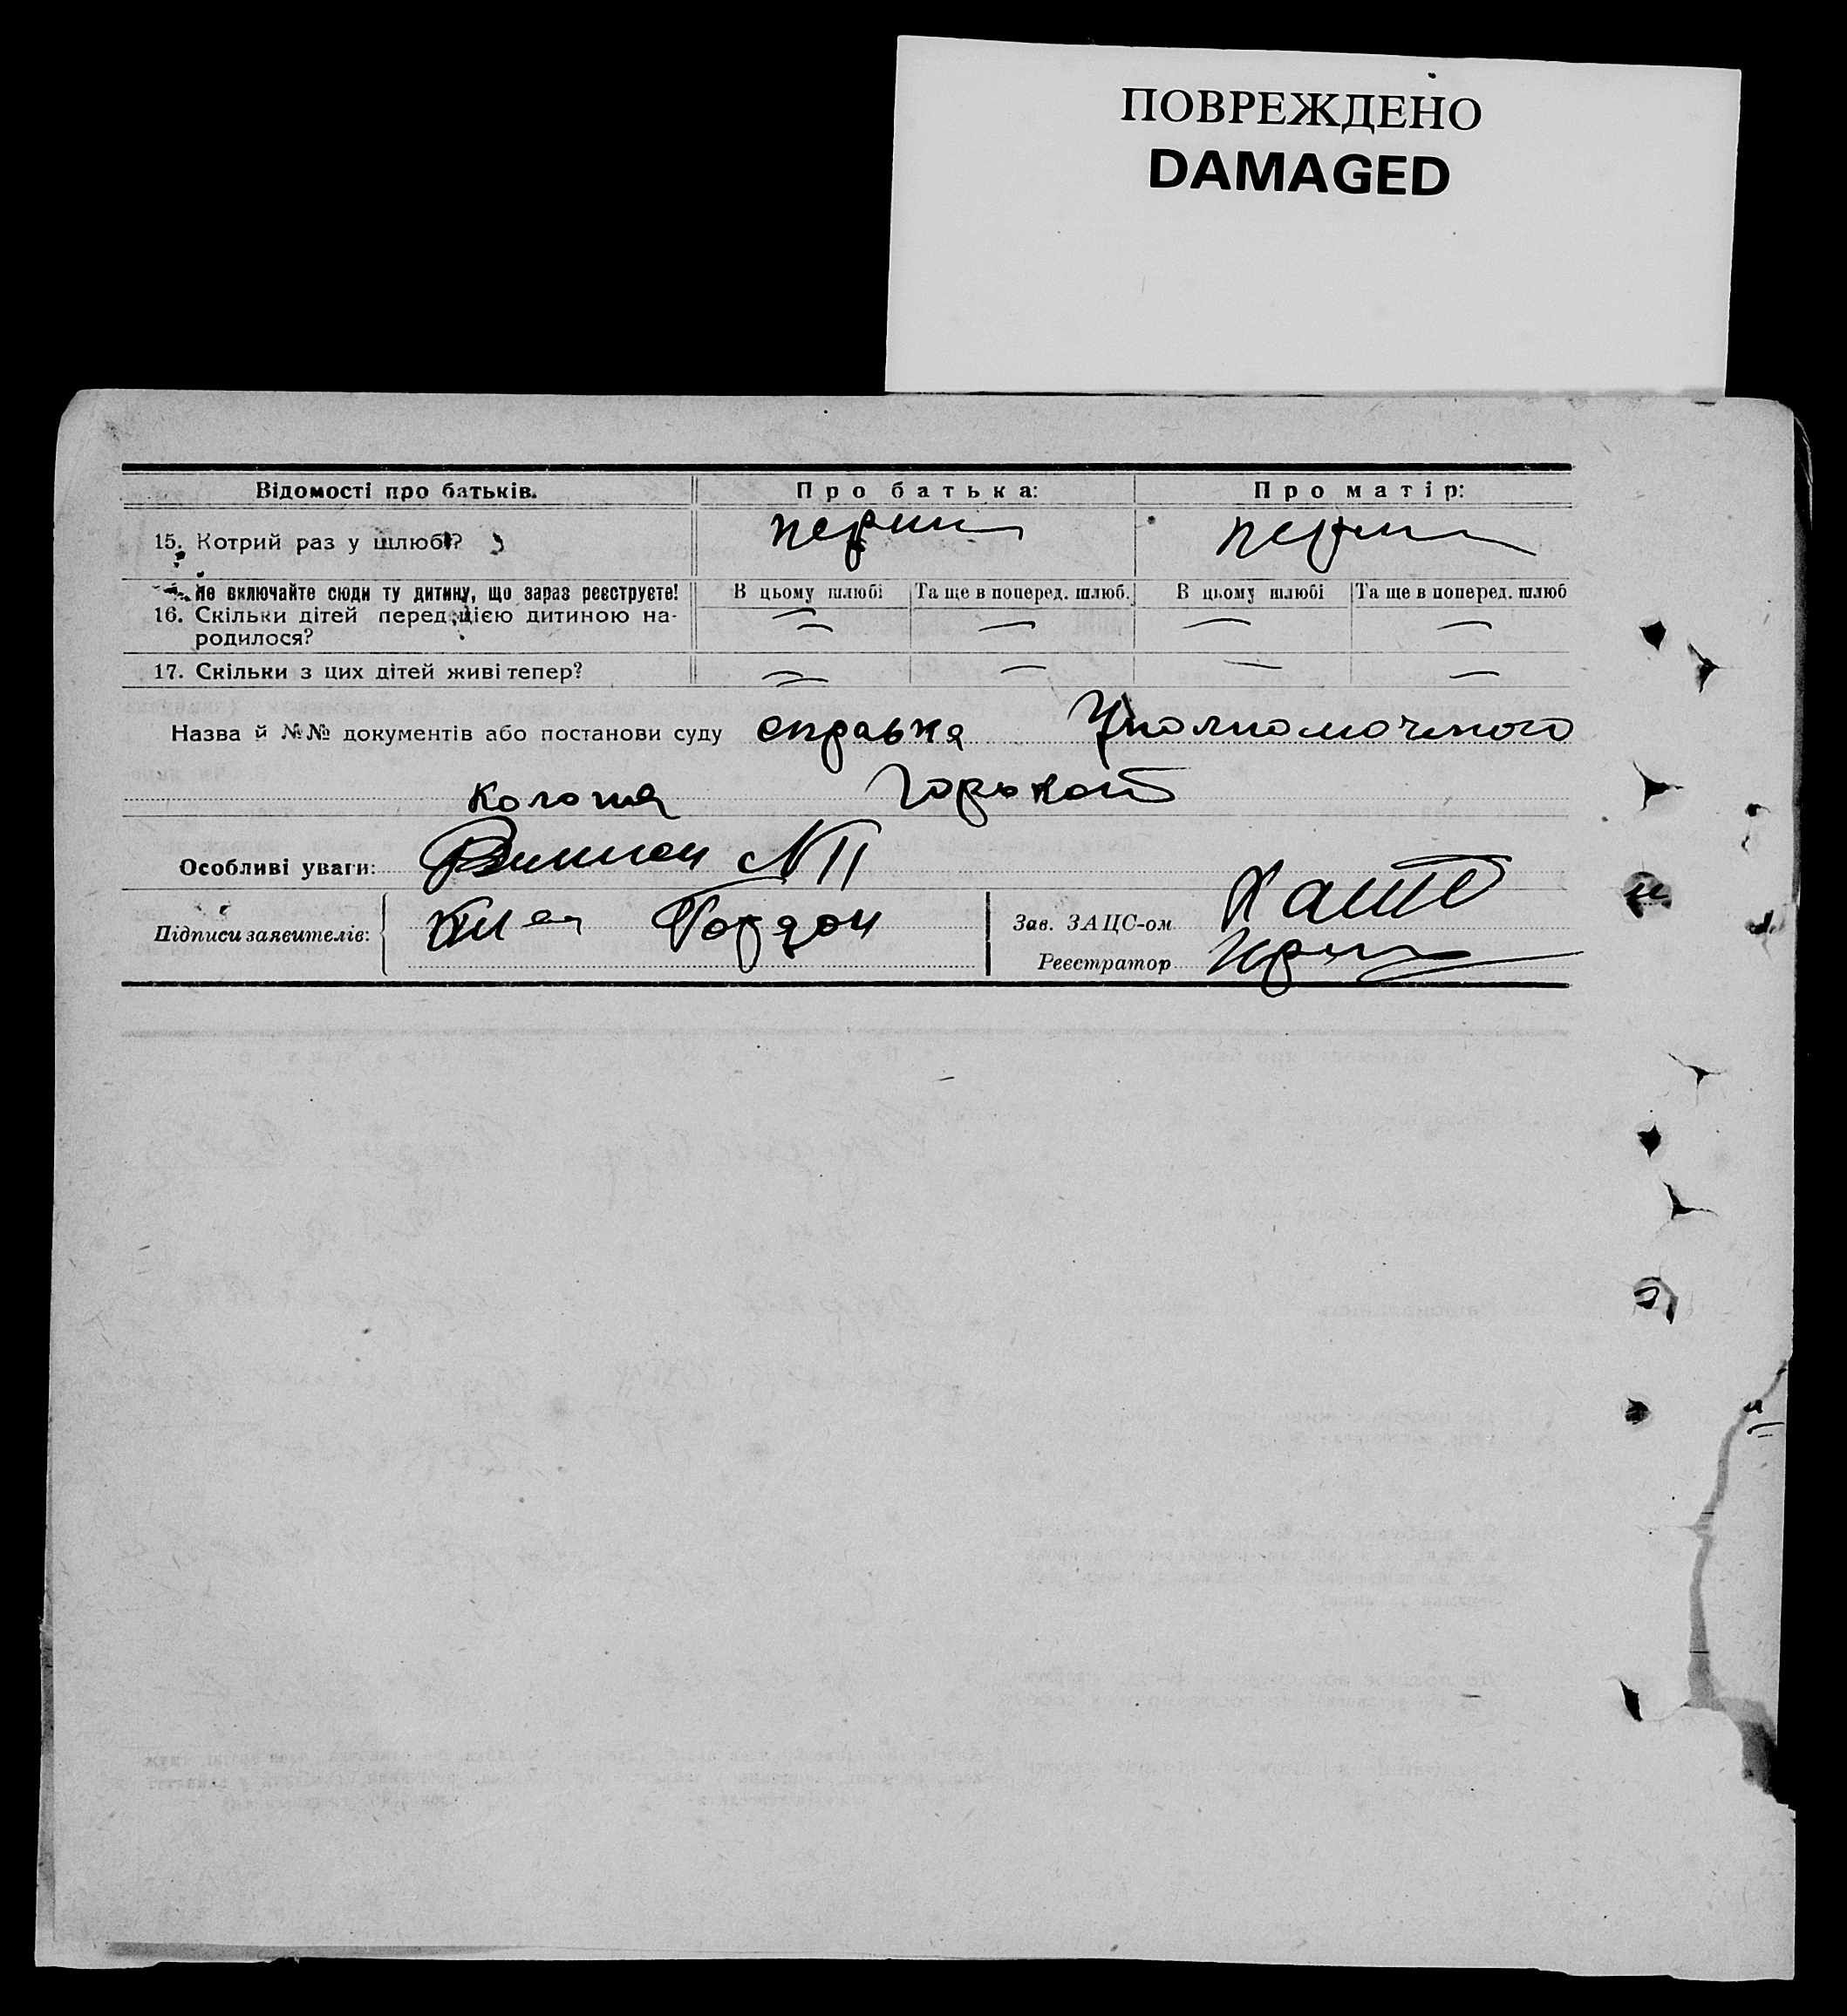 ПОВРЕЖДЕНО
DAMAGED
Відомості про батьків. Про батька: Про матір:
15. Котрий раз у шлюбі? перши перши
Не включайте сюди ту дитину, що зараз реєструєте! В цьому шлюбі Та ще в поперед. шлюб. В цьому шлюбі Та ще в поперед. шлюб
16. Скільки дітей перед цією дитиною на-
родилося? — — — —
17. Скільки з цих дітей живі тепер? — — — —
Назва й №№ документів або постанови суду справка Уполномоченого
Особливі уваги:
Підписи заявителів: Гордон Зав. ЗАЦС-ом
Реєстратор